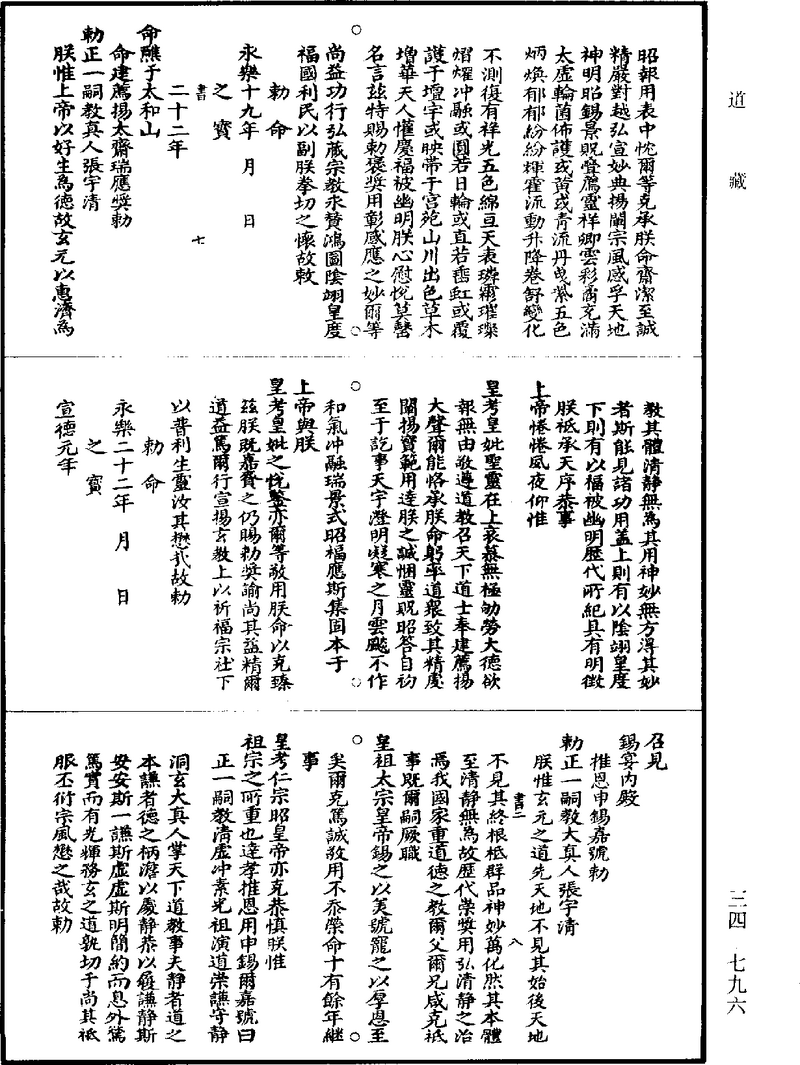 道藏
昭報用表中忱爾等克承朕命齋潔至誠
精嚴對越弘宣妙典揚闡宗風感孚天地
神明昭錫景貺疊薦靈祥卿雲彩霱充滿
太虛輪菌佈護或黃或青流丹曳紫五色
炳煥郁郁紛紛輝霍流動升降卷舒變化
不測復有祥光五色綿亘天表璘霦璀璨
熠燿冲融或圓若日輪或直若垂虹或覆
護于壇宇或映帶于宮苑山川出色草木
增華天人懽慶福被幽明朕心慰悅莫罄
名言茲特賜勅褒獎用彰感應之妙爾等
尚益功行弘蕆宗教永贊鴻圖陰翊皇度
福國利民以副朕拳切之懷故敕
勅命
永樂十九年 月 日
之寶
書 七
二十二年
命醮于太和山
命建薦揚太齋瑞應獎勅
勅正一嗣教真人張宇清
朕惟上帝以好生為德故玄元以惠濟為
教其體清靜無為其用神妙無方得其妙
者斯能見諸功用蓋上則有以陰翊皇度
下則有以福被幽明歷代所紀具有明徵
朕祗承天序恭事
上帝惓惓夙夜仰惟
皇考皇妣聖靈在上哀慕無極劬勞大德欲
報無由敬遵道教召天下道士奉建薦揚
大齋爾能恪承朕命躬率道衆致其精虔
闡揚寶範用達朕之誠悃靈貺昭答自初
至于訖事天宇澄明凝寒之月雲飈不作
和氣冲融瑞景式昭福應斯集固本于
上帝與朕
皇考皇妣之悅鑒亦爾等敬用朕命以克臻
茲朕既嘉賚之仍賜勅獎諭尚其益精爾
道益篤爾行宣揚玄教上以祈福宗社下
以普利生靈汝其懋哉故勅
勅命
永樂二十二年 月 日
之寶
宣德元年
召見
錫宴內殿
推恩申錫嘉號勅
勅正一嗣教大真人張宇清
朕惟玄元之道先天地不見其始後天地
書二 八
不見其終根柢群品神妙萬化然其本體
至清靜無為故歷代崇獎用弘清靜之治
為我國家重道德之教爾父爾兄咸克祗
事既爾嗣厥職
皇祖太宗皇帝錫之以美號寵之以厚恩至
矣爾克篤誠敬用不忝榮命十有餘年繼
事
皇考仁宗昭皇帝亦克恭慎朕惟
祖宗之所重也達孝推恩用申錫爾嘉號曰
正一嗣教清虛冲素光祖演道崇謙守靜
洞玄大真人掌天下道教事夫靜者道之
本謙者德之柄澹以處靜恭以履謙靜斯
安安斯一謙斯虛虛斯明簡約而息外篤
篤實而有光輝務玄之道孰切于尚其祗
服丕衍宗風懋之哉故勅
三四 七九六